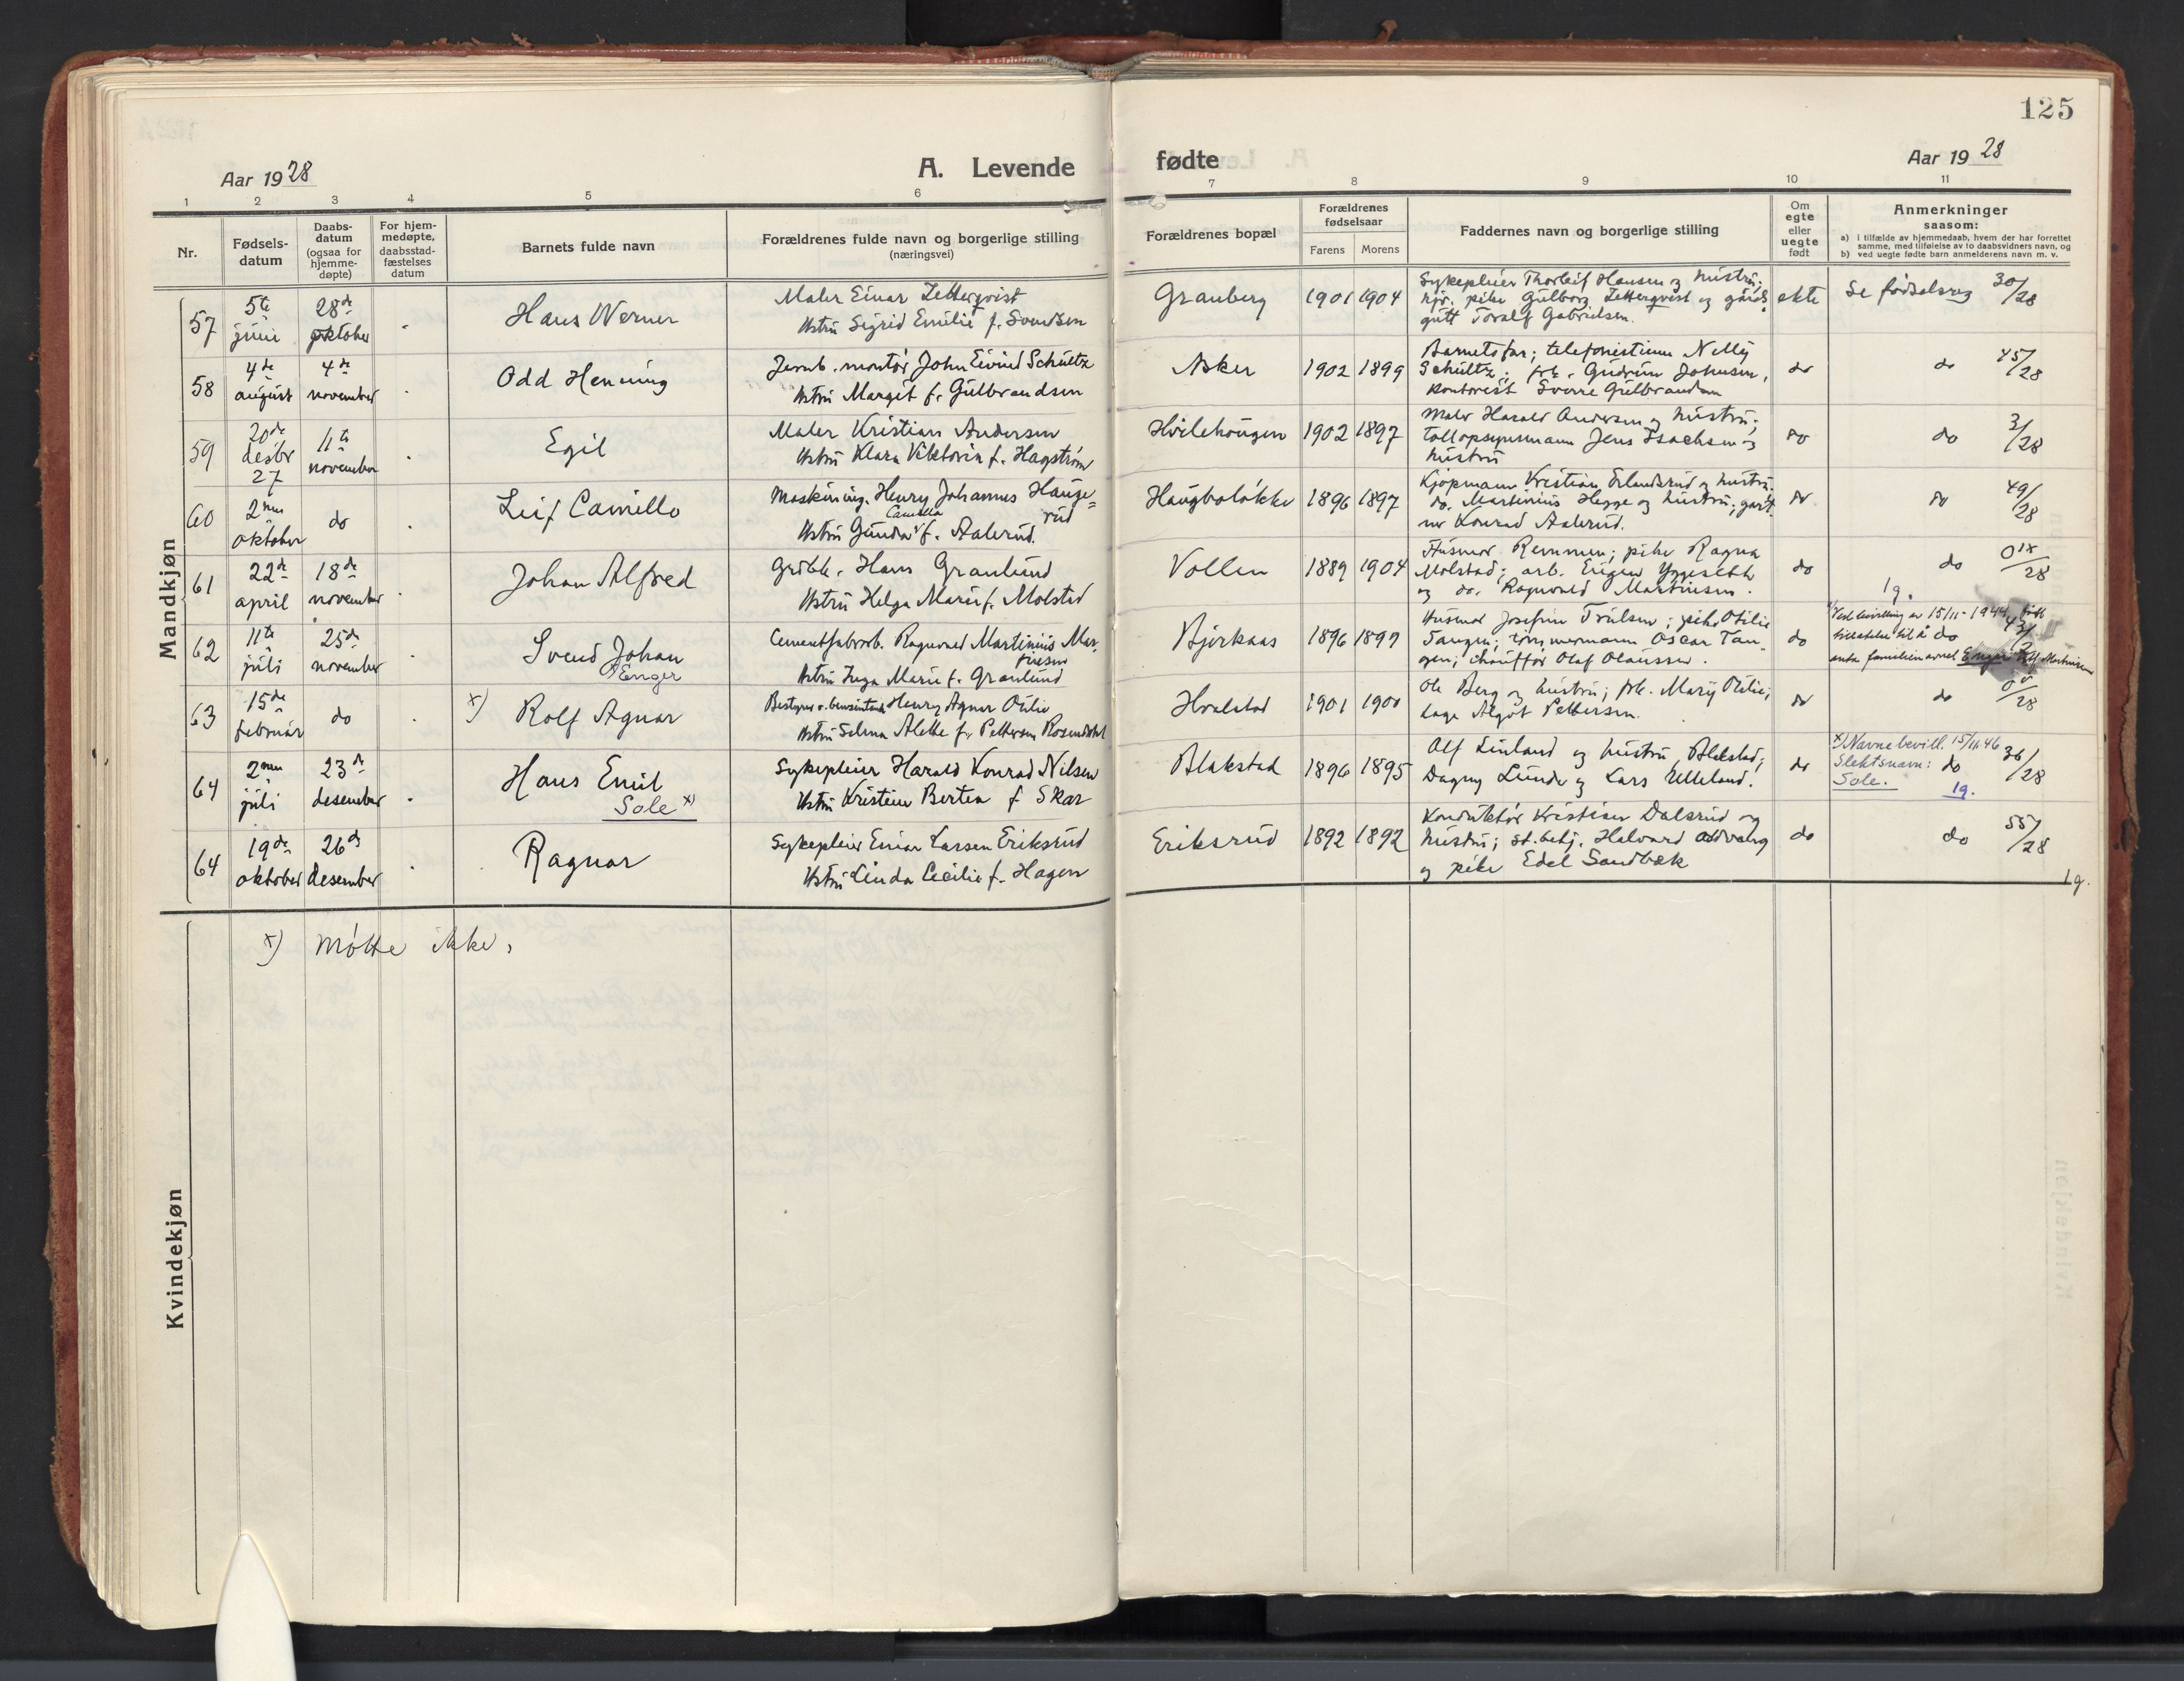 125
Aar 1928
A. Levende
fødte
Aar 1928
1 2 3 4 5 6 7 8 9 10 11
Nr.
Fødsels-
datum
Daabs-
datum
(ogsaa for
hjemme-
døpte)
For hjem-
medøpte,
daabsstad-
fæstelses
datum
Barnets fulde navn
Forældrenes fulde navn og borgerlige stilling
(næringsvei)
Forældrenes bopæl
Forældrenes
fødselsaar
Farens Morens
Faddernes navn og borgerlige stilling
Om
egte
eller
uegte
født
Anmerkninger
saasom:
a) i tilfælde av hjemmedaab, hvem der har forrettet
samme, med tilføielse av to daabsvidners navn, og
b) ved uegte fødte barn anmelderens navn m. v.
Mandkjøn
57
5te
juni
28de
oktober
Hans Werner
Maler Einar Zetterqvist
Hstru Sigrid Emilie f. Svendsen
Granberg
1901 1904
Sykepleier Thorleif Hansen og hustru;
pike Gulborg Zetterqvist og gårds
gutt Toralf Gabrielsen.
ekte
Se fødselsreg 30/28
58
4de
august
4de
november
Odd Henning
Jernb. montør John Eivind Schultz
Hstru Margit f. Gulbrandsen
Asker
1902 1899
Barnets far; telefonistinne Nelly
Schultz; frk. Gudrun Johnsen,
kontorist Sverre Gulbrandsen
do
do 45/28
59
20de
desbr
27
11te
november
Egil
Maler Kristian Andersen
Hstru Klara Viktoria f. Hagstrøm
Hvilehaugen
1902 1897
Maler Harald Andersen og hustru;
Tollopsynsmann Jens Isachsen og
hustru
do
do 3/28
60
2nen
oktober
do
Leif Camillo
Maskining. Henry Johannes Hauge=
rud
Camilla
Hstru Gunda f. Aalerud.
Haugboløkke
1896 1897
Kjøpmann Kristian Erlandsrud og hustru.
do. Martinius Hegge og hustru; gart
ner Konrad Aalerud.
do
do 49/28
61
22de
april
18de
november
Johan Alfred
Hans Granlund
Hstru Helga Marie f. Molstad
Vollen
1889 1904
Husmor Remmen; pike Ragna
Molstad; arb. Eugen Yggeseth
og do. Ragnvald Martinsen.
do
do
/28
1g.
62
11te
juli
25de
november
Svend Johan
Enger
Cementfabrarb. Ragnvald Martinius Mar-
tinsen
Hstru Inga Marie f. Granlund
Bjerkaas
1896 1897
Husmor Josefine Trulsen; pike Otilie
Tangen; tømmermann Oscar Tan-
gen; chauffør Olaf Olaussen.
do
Ved bevilling av 15/11-1944 født
tillatelse til å do
anta familienavnet Enger Martinsen
63
15de
februar
do
x) Rolf Agnar
Bestyrer Henry Agnar Otilie
Hstru Selma Alette f. Pettersen Rosendahl
Hvalstad
1901 1900
Ole Berg og hustru; frk. Mary Otilie;
Algot Pettersen.
do
do
/28
64
2nen
juli
23de
desember
Hans Emil
Sole x)
Sykepleier Harald Konrad Nilsen
Hstru Kristine Bertea f Skar
Blakstad
1896 1895
Alf Linland og hustru, Blakstad;
Dagny Lunde og Lars Ulleland.
do
x) Navnebevill. 15/11 46
Slektsnavn: do 36/28
Sole. 1g.
64
19de
oktober
26de
desember
Ragnar
Sykepleier Einar Larsen Eriksrud
Hstru Linda Cecilie f. Hagen
Eriksrud
1892 1892
Konduktør Kristian Dalsrud og
hustru; st.betj. Halvard Advang
og pike Edel Sandbæk
do
do 55/28
1g.
x) Møtte ikke.
Kvindekjøn